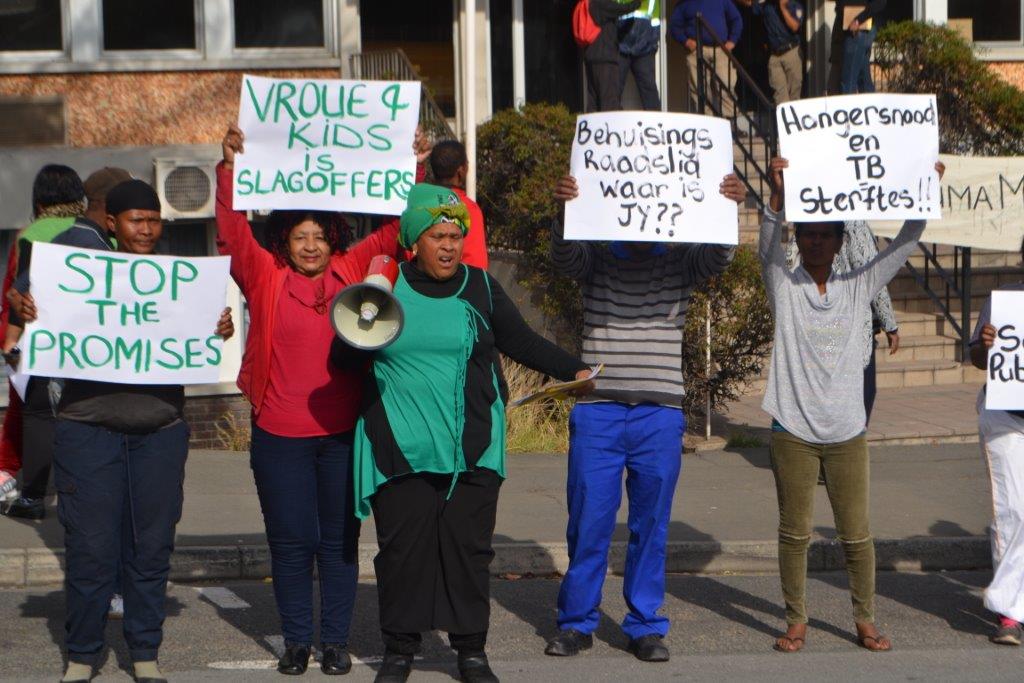 STOP
THE
PROMISES
VROUE &
KIDS
IS
SLAGOFFERS
Behuisings
Raadslid
waar is
JY??
Hongersnood
en
TB
Sterftes!!